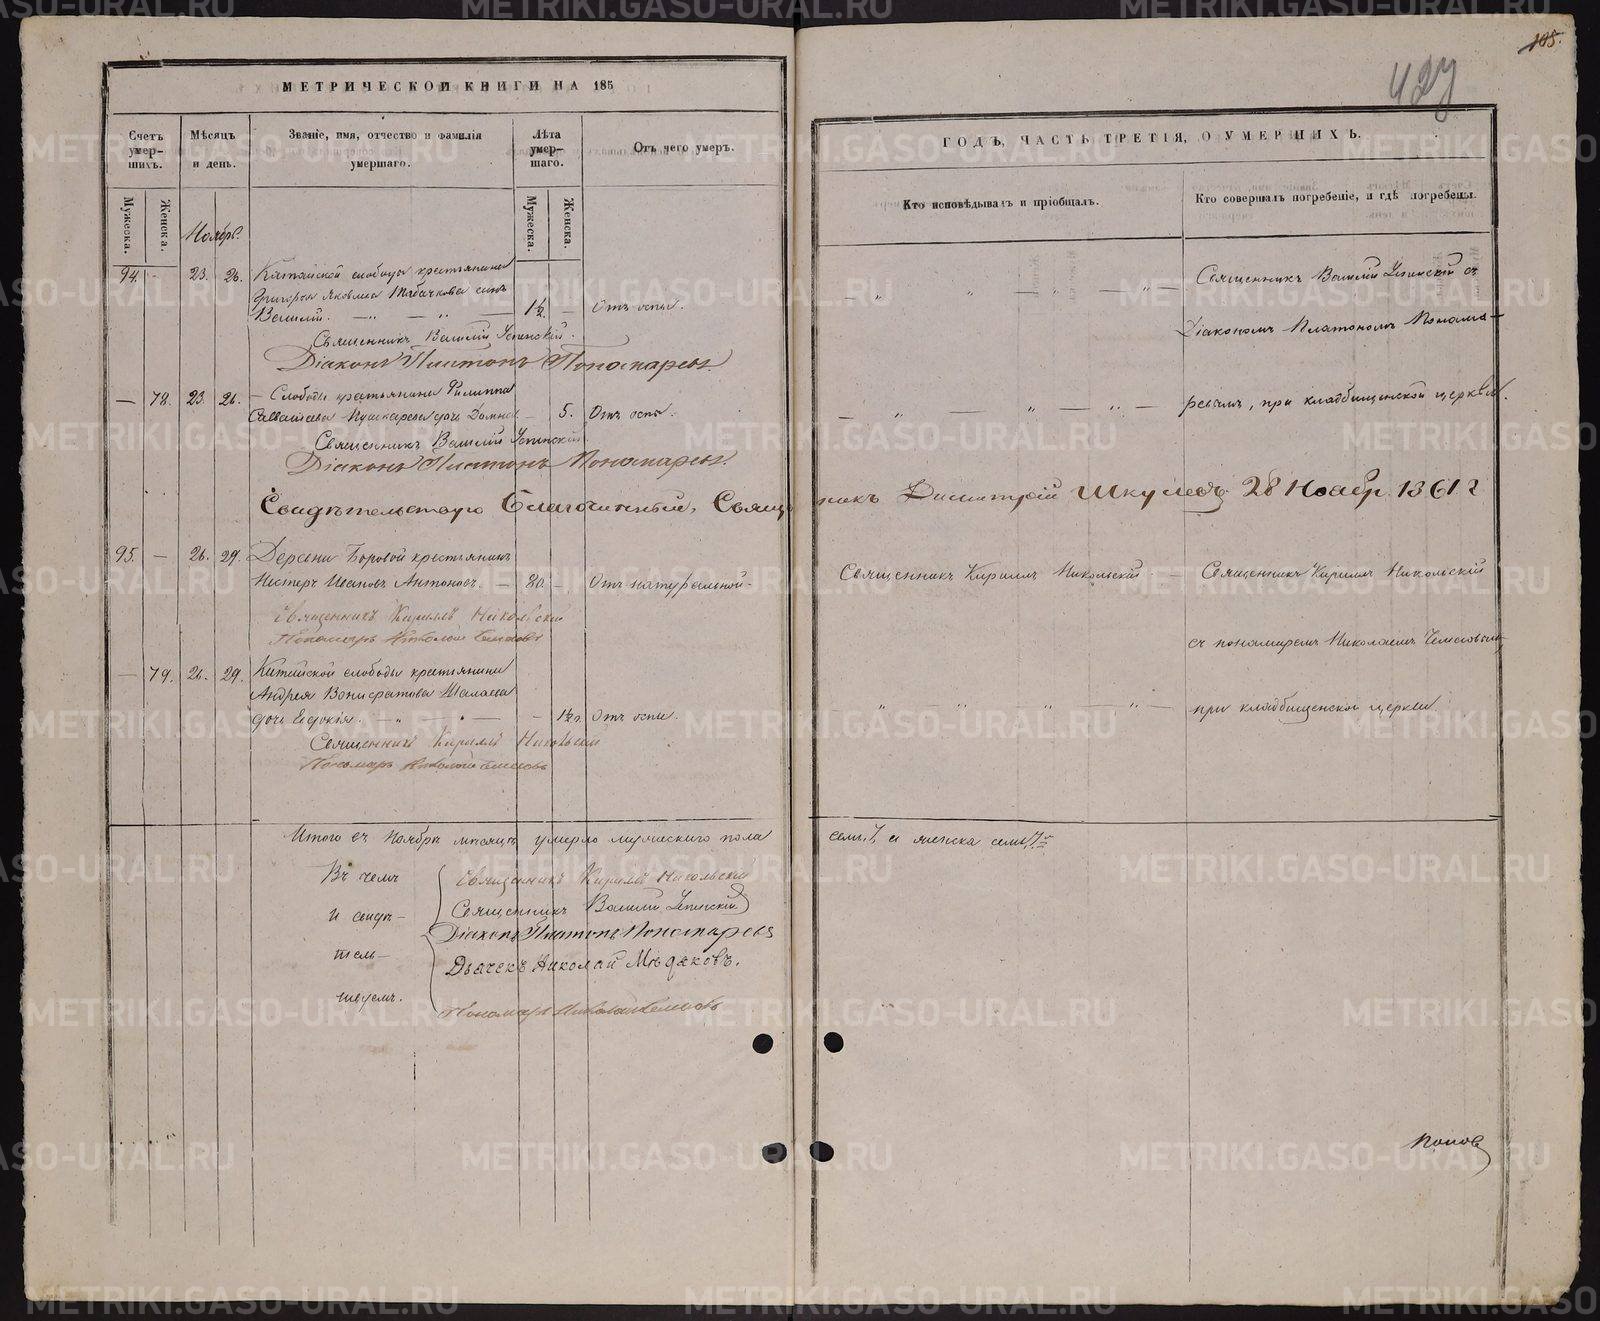 МЕТРИЧЕСКОЙ КНИГИ НА 185
Счетъ умер-шихъ.
Мѣсяцъ и день.
Званіе, имя, отчество и фамилія умершаго.
Лѣта умер-шаго.
Отъ чего умеръ.
Мужеска.
Женска.
Ноябрь.
Мужеска.
Женска.
94. - 23. 26. Катайской слободы крестьянина
Григорья Яковлева Табачкова сынъ
Василій. 1½. — Отъ оспы.
Священникъ Василій Успенскій.
Діаконъ Платонъ Пономаревъ.
— 78. 23. 26. — Слободы крестьянина Филиппа
Савватіева Пушкарева дочь Домна — 5. Отъ оспы.
Священникъ Василій Успенскій.
Діаконъ Платонъ Пономаревъ.
Свидѣтельствую Благочинный, Священникъ Димитрій Шкулевъ 28 Ноябр. 1861 г
95. — 26. 29. Деревни Боровой крестьянинъ
Несторъ Ивановъ Антоновъ. — 80. — Отъ натуральной.
Священникъ Кириллъ Никольскій
Пономарь Николай
— 79. 26. 29. Катайской слободы крестьянина
Андрея Вонифатова
дочь Евдокія. — 1½. Отъ оспы.
Священникъ Кириллъ Никольскій
Пономарь Николай
Итого въ Ноябрѣ мѣсяцѣ умерло мужескаго пола
Въ чемъ
и свидѣ-
тель-
ствуемъ.
Священникъ Кириллъ Никольскій
Священникъ Василій Успенскій
Діаконъ Платонъ Пономаревъ
Дьячекъ Николай Мѣдяковъ.
Пономарь Николай
105.
427
ГОДЪ, ЧАСТЬ ТРЕТІЯ, О УМЕРШИХЪ.
Кто исповѣдывалъ и пріобщалъ.
Кто совершалъ погребеніе, и гдѣ погребены.
Священникъ Василій Успенскій съ
Діакономъ Платономъ Понома-
ревымъ, при кладбищенской церкви.
Священникъ Кириллъ Никольскій — Священникъ Кириллъ Никольскій
съ пономаремъ Николаемъ
при кладбищенской церкви.
семь, 7, а женска семь, 7.
Попов
METRIKI.GASO-URAL.RU